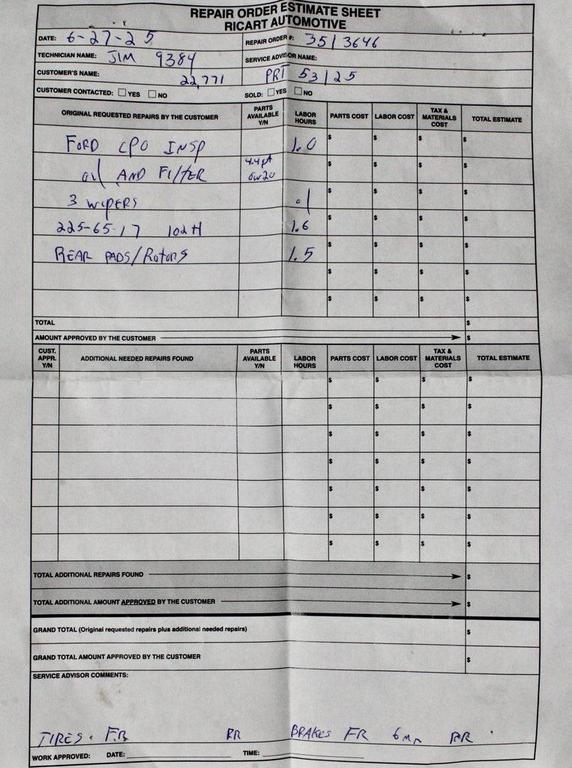 REPAIR ORDER ESTIMATE SHEET
RICART AUTOMOTIVE
DATE: 6-27-25 REPAIR ORDER #: 3513646
TECHNICIAN NAME: JIM 9384 SERVICE ADVISOR NAME:
CUSTOMER'S NAME: 22,771 PRT 53125
CUSTOMER CONTACTED: YES NO SOLD: YES NO
ORIGINAL REQUESTED REPAIRS BY THE CUSTOMER PARTS AVAILABLE Y/N LABOR HOURS PARTS COST LABOR COST TAX & MATERIALS COST TOTAL ESTIMATE
FORD CPO INSP 1.0 $ $ $ $
oil AND FILTER 4.4 qt 0W20 $ $ $ $
3 WIPERS .1 $ $ $ $
225-65-17 102H 1.6 $ $ $ $
REAR PADS/Rotors 1.5 $ $ $ $
$ $ $ $
$ $ $ $
TOTAL $
AMOUNT APPROVED BY THE CUSTOMER $
CUST. APPR. Y/N ADDITIONAL NEEDED REPAIRS FOUND PARTS AVAILABLE Y/N LABOR HOURS PARTS COST LABOR COST TAX & MATERIALS COST TOTAL ESTIMATE
$ $ $ $
$ $ $ $
$ $ $ $
$ $ $ $
$ $ $ $
$ $ $ $
$ $ $ $
TOTAL ADDITIONAL REPAIRS FOUND $
TOTAL ADDITIONAL AMOUNT APPROVED BY THE CUSTOMER $
GRAND TOTAL (Original requested repairs plus additional needed repairs) $
GRAND TOTAL AMOUNT APPROVED BY THE CUSTOMER $
SERVICE ADVISOR COMMENTS:
TIRES. RR BRAKES FR 6mm RR
WORK APPROVED: DATE: TIME: